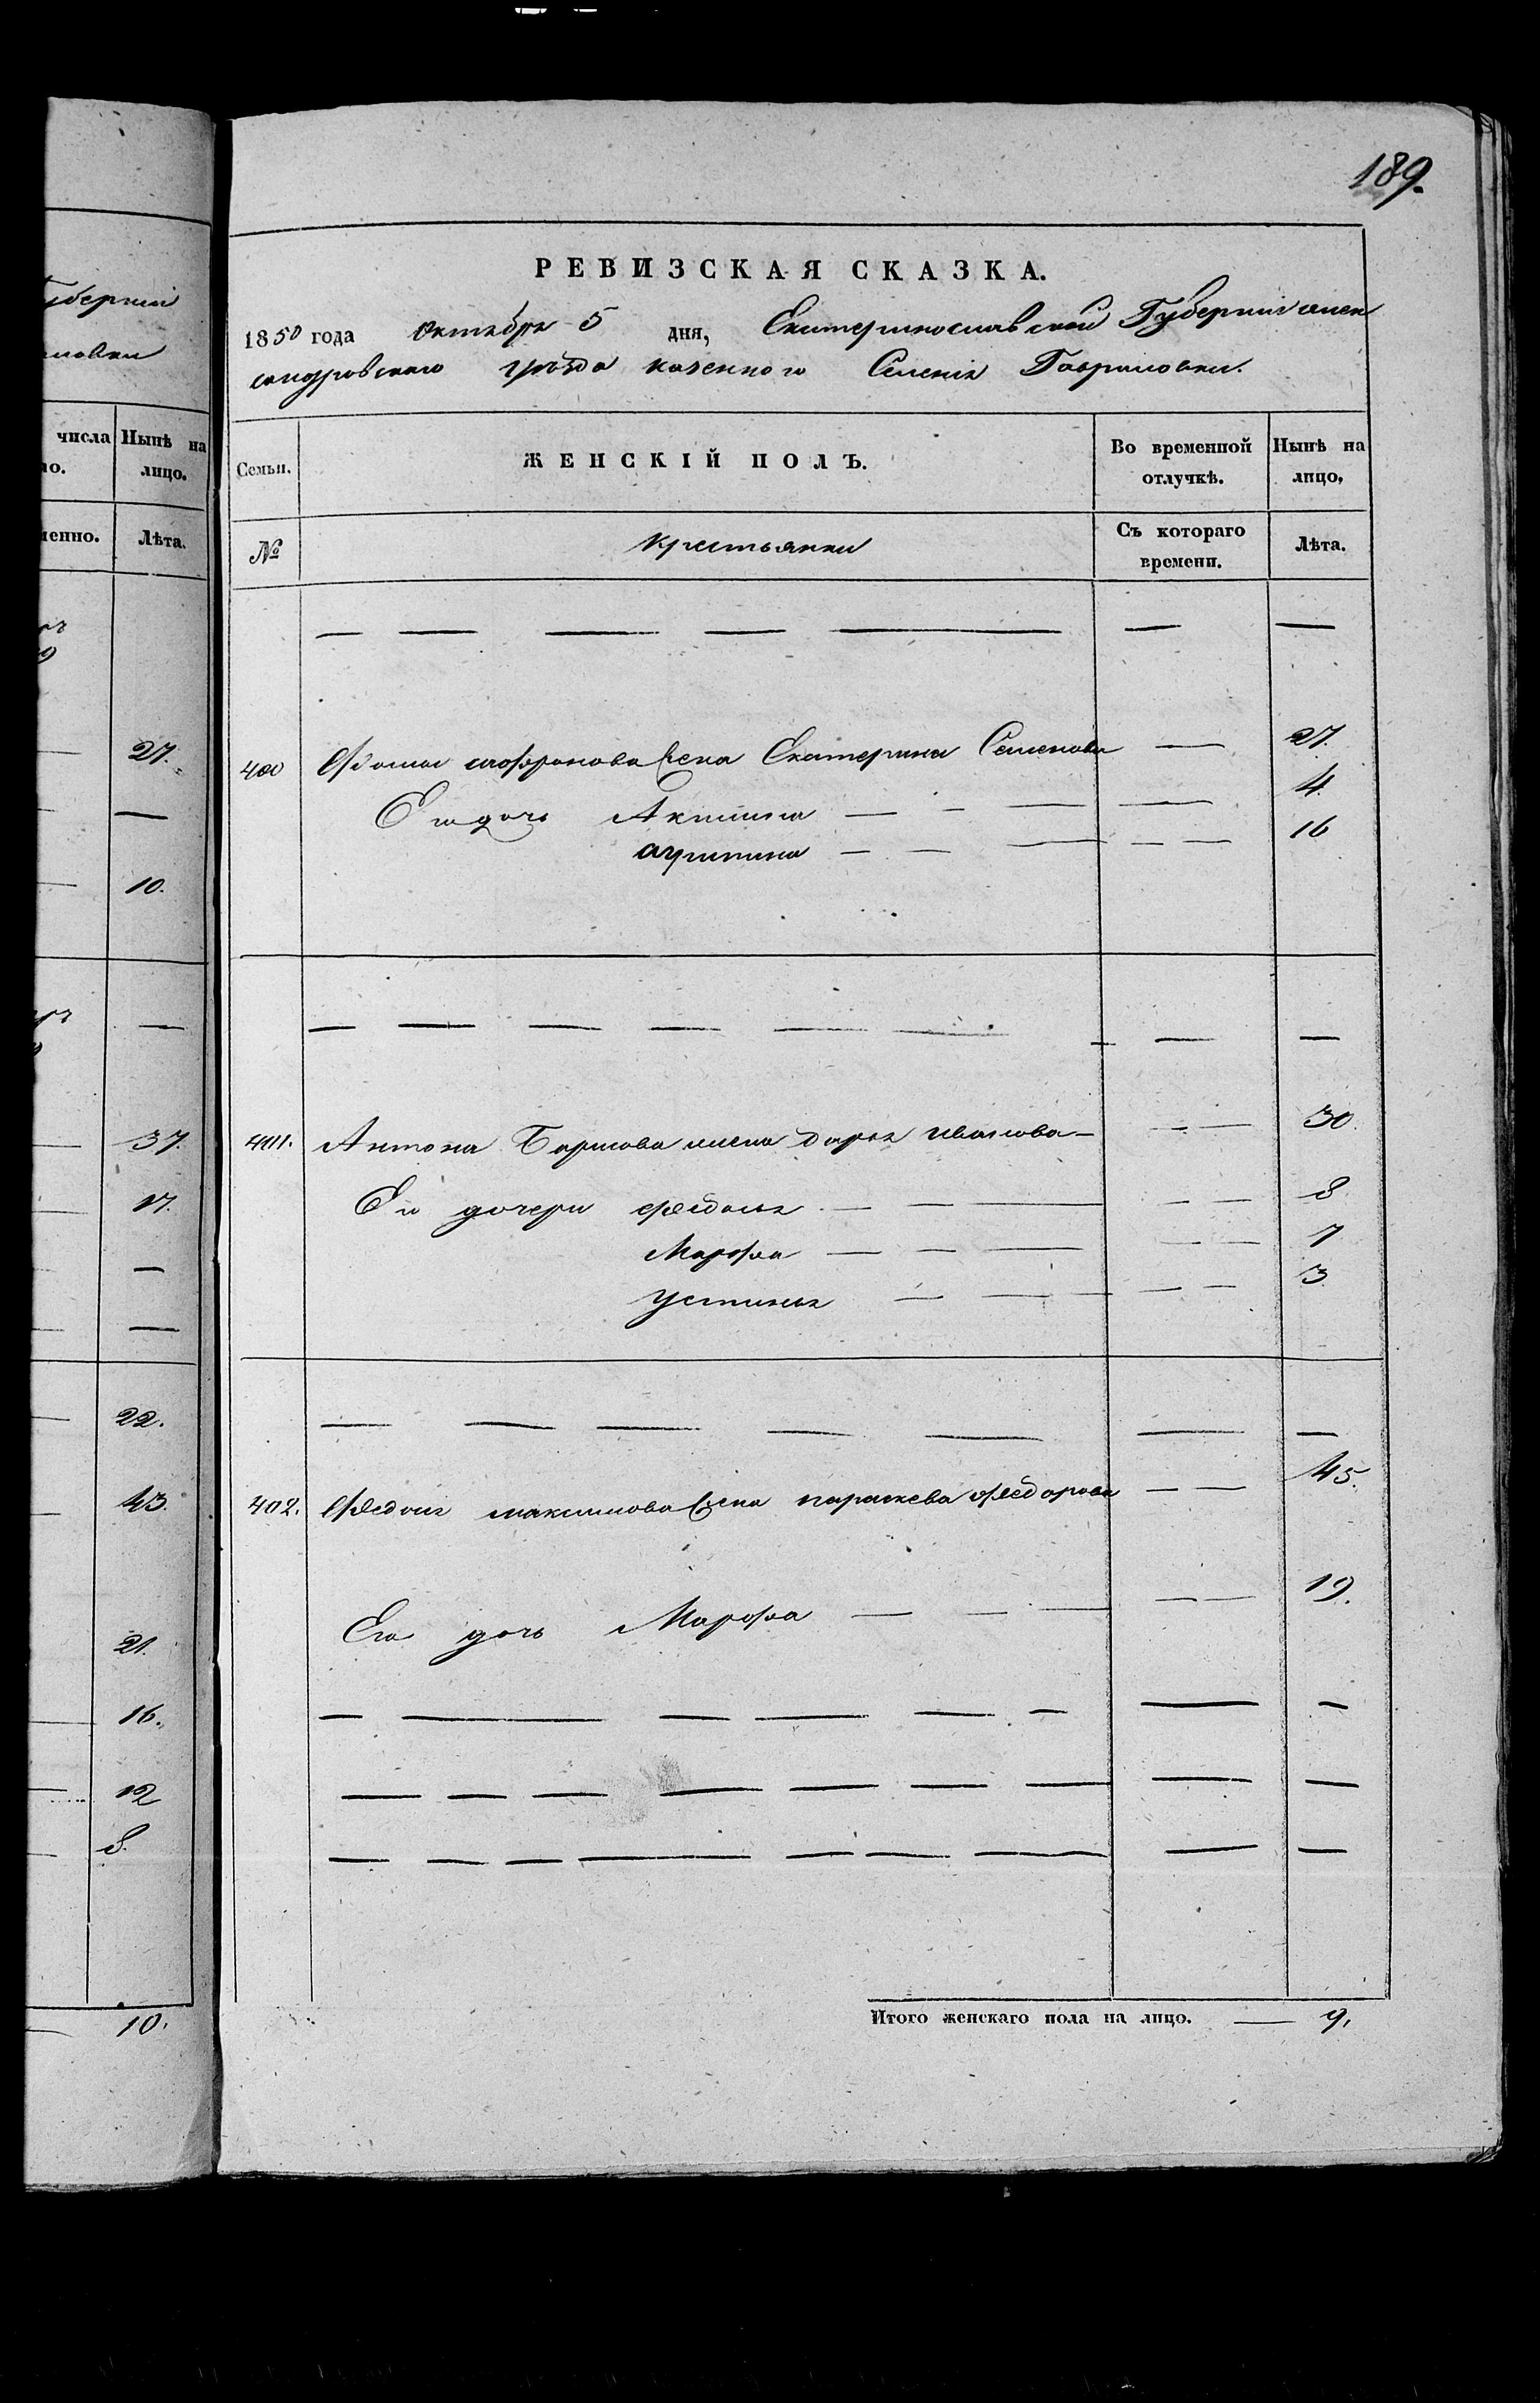 уберніи
ловки
числа Нынѣ на
ло. лицо.
менно. Лѣта.
27.
10.
37.
17.
22.
43.
21.
16.
12
8.
10.
189.
РЕВИЗСКАЯ СКАЗКА.
1850 года Октября 5 дня, Екатеринославской Губерніи алек
сандровского уѣзда казенного Селенія Гавриловки.
Семьи. ЖЕНСКІЙ ПОЛЪ. Во временной отлучкѣ. Нынѣ на лицо,
№ Крестьянки Съ котораго времени. Лѣта.
— — — — — — —
400 Фомы софронова жена Екатерина Семенова — 27.
Его дочь Акилина — — — — 4.
агрипина — — — — — 16
— — — — — — — —
401. Антона Борисова жена дарья иванова — — — 30.
Его дочери федосья — — — — — 8
Марфа — — — — — 7
устинья — — — — 3
— — — — — — —
402. Федота максимова жена параскева федорова — — 45.
Его дочь Марфа — — — — — 19.
— — — — — — — —
— — — — — — — — —
— — — — — — — — —
Итого женскаго пола на лицо. — 9.